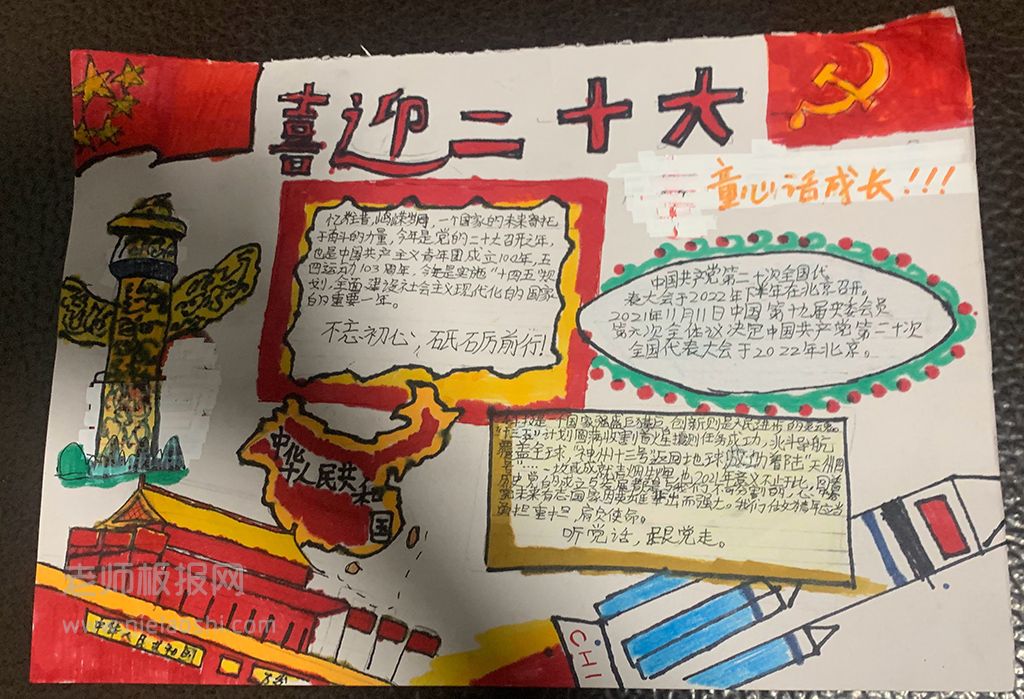 喜迎二十大
童心话成长!!!
忆往昔,峥嵘岁月,一个国家的未来寄托
于奋斗的力量,今年是党的二十大召开之年,
也是中国共产主义青年团成立100年,五
四运动103周年,今年是实施"十四五"规
划,全面建设社会主义现代化的国家
的重要一年。
不忘初心、砥砺前行!
中国共产党第二十次全国代
表大会于2022年下半年在北京召开。
2021年11月11日中国第十九届央委会员
第六次全体议决定中国共产党第二十次
全国代表大会于2022年北京。
中华人民共和国
科技是一个国家强盛
创新则是人民进步的
"十三五"计划圆满收
任务成功,北斗导航
覆盖全球,神州十三号返回地球成功着陆
听党话,跟党走。
中华人民共和国
万岁
CHI
老师板报网
www.nielanshi.com